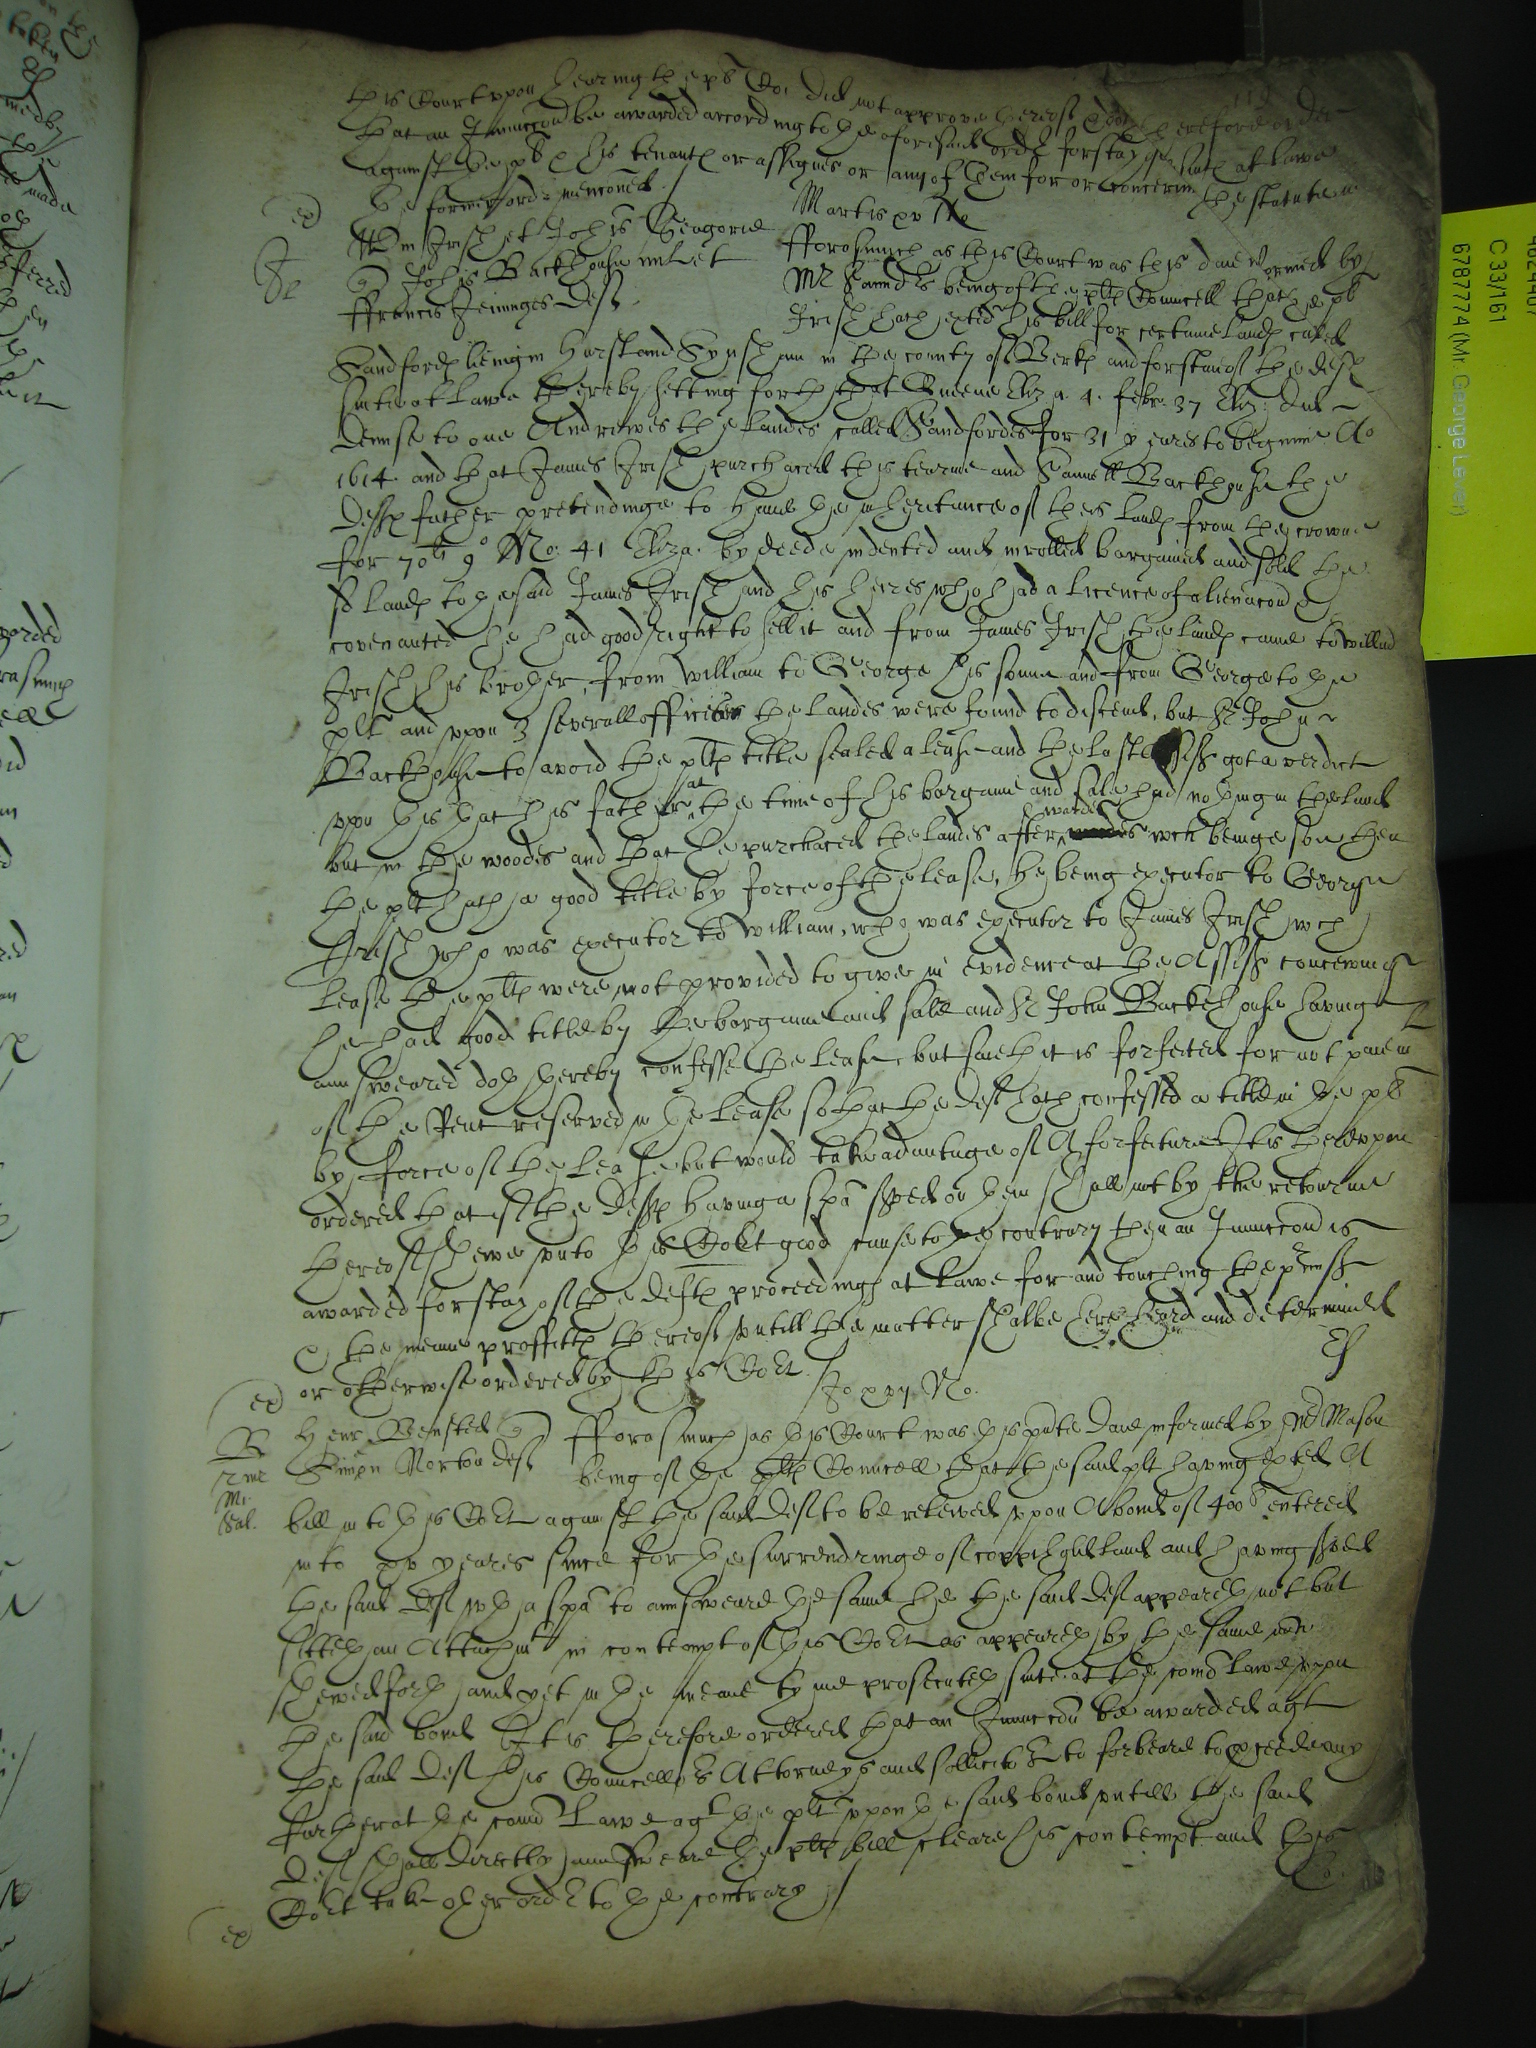 this Court upon hearing the pts Co: did not approve hereof doth therefore order
that an Iniunccon be awarded according to the aforesaid order for stay of suite at lawe
against the pt his tenante or assignes or any of them for or concerning the statute in
the former order menconed /
Martis xv No
Willm Irish et Joh is Seagorie
q Joh is Backhouse milet
ffrancis Jeninges Deft
fforasmuch as this Court was this daie informed by
Mr Saund rs being of the plts Councell that the pl t
Irish hath exted his bill for certaine lande called
Sandforde lieing in Hurst and Synsham in the county of Berks and for staie of the deft
suite at lawe thereby setting forth that Queene Eliza 4. febr. 37 Eliz: did
demise to one Andrewes the landes called Sandfordes for 31 yeares to beginne Ao
1614 and that James Irish purchaced this tearme and Samuell Backhouse the
defts father pretendinge to have the inheritance of thes lande from the crowne
for 70 li 9o No: 41 Eliza. by deede indented and inrolled bargained and sold the
sd lande to the said James Irish and his heires who had a licence of alienacon &
covenanted he had good right to sell it and from James Irish the lande came to William
Irish his brother, from William to George his sonne and from George to the
plt and upon 3 severall offices the landes were found to discend, but Sr John
Backhouse to avoid the plts title sealed a lease and the last Assise got a verdict
upon this that his father at the time of his bargaine and sale had nothing in the land
but in the woodes and that he purchaced the landes after wardes wch beinge soe then
the plt hath a good title by force of the lease, he being executor to George
Irish who was executor to William, who was executor to James Irish wch
lease the plts were not provided to give in evidence at the Assise conceiving
he had good title by the bargaine and sale and Sr John Backhouse having
answeared doth thereby confesse the lease but saieth it is forfeted for not paiemt
of the Rent reserved in the lease so that the deft hath confessed a title in the plt
by force of the lease but would take advantage of A forfeiture It is thereupon
ordered that if the defts having a spa served on them shall not by the retourne
thereof shewe unto this Co rt good cause to the contrary then an Iniunccon is
awarded for stay of the defts proceedings at lawe for and touching the prmisses
& the meane proffitts thereof untill the matter shalbe here heard and determined
or otherwise ordered by this Co rt / Jo xvj No.
Henr Bensted q
Simpn Norton deft
fforasmuch as this Court was this pnte daie informed by Mr Mason
being of the plts Councell that the said plt having exted A
bill into this Co rt against the said deft to be releived upon A bond of 400 li entered
into xv yeares since for the surrendringe of coppihould land and having served
the said deft wth a spa to answeare the same he the said deft appeareth not but
sitteth an Attachmt in contempt of this Co rt as appeareth by the same now
shewed forth and yet in the meane tyme prosecuteth suite at the comon lawe upon
the said bond It is therefore ordered that an Iniunccon be awarded agt
the said deft his Councello rs Attorneys and sollicito rs to forbeare to proceede any
further at the comon lawe agt the plt upon the said bond untill the said
deft shall directly answeare the plts bill cleare his contempt and this
Co rt take other order to the contrary /
C 33/161
6787774 (Mr. George Lever)